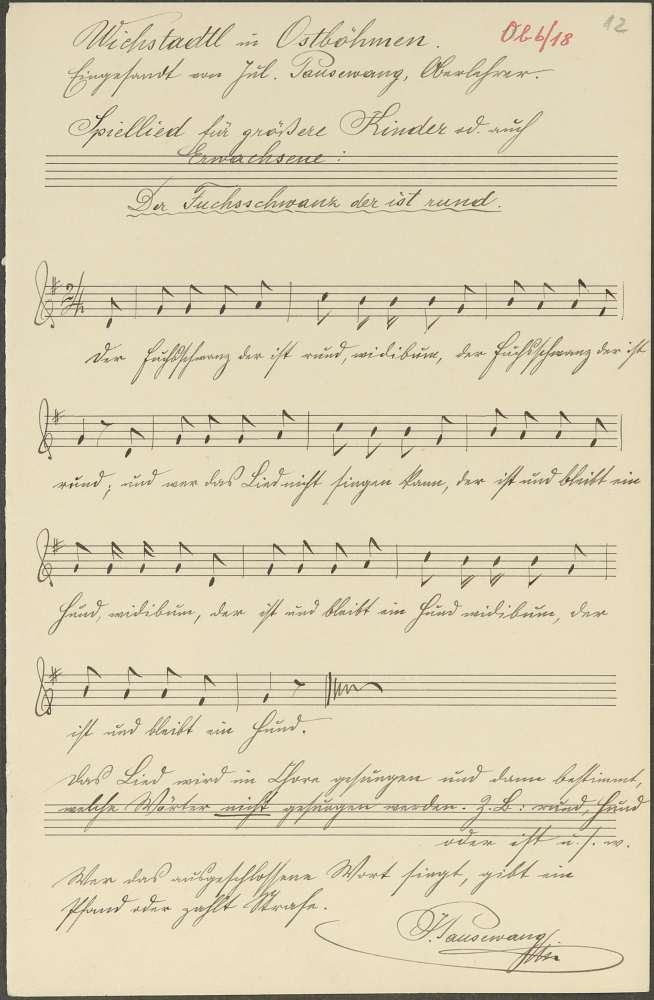 12
Ob b/18
Wichstadtl in Ostböhmen.
Eingesandt von Jul. Pausewang, Oberlehrer.
Spiellied für größere Kinder od. auch
Erwachsene:
Der Fuchsschwanz der ist rund.
2/4
Der Fuchsschwanz der ist rund, widibum, der Fuchsschwanz der ist
rund; und wer das Lied nicht singen kann, der ist und bleibt ein
Hund, widibum, der ist und bleibt ein Hund widibum, der
ist und bleibt ein Hund.
Das Lied wird im Chore gesungen und dann bestimmt,
welche Wörter nicht gesungen werden. Z. B.: rund, Hund
oder ist u. s. w.
Wer das ausgeschlossene Wort singt, gibt ein
Pfand oder zahlt Strafe.
J. Pausewang